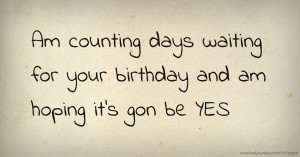 Am counting days waiting
for your birthday and am
hoping it's gon be YES